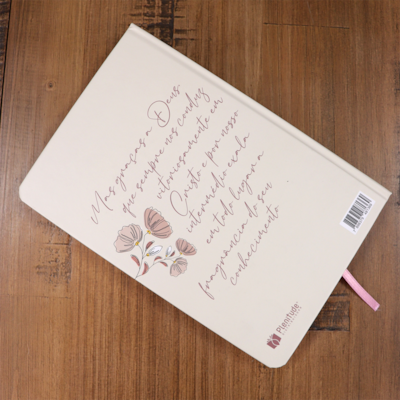 Mas graças a Deus
que sempre nos conduz
vitoriosamente em
Cristo e por nosso
intermédio exala
em todo lugar a
fragrância do seu
conhecimento.
Plenitude